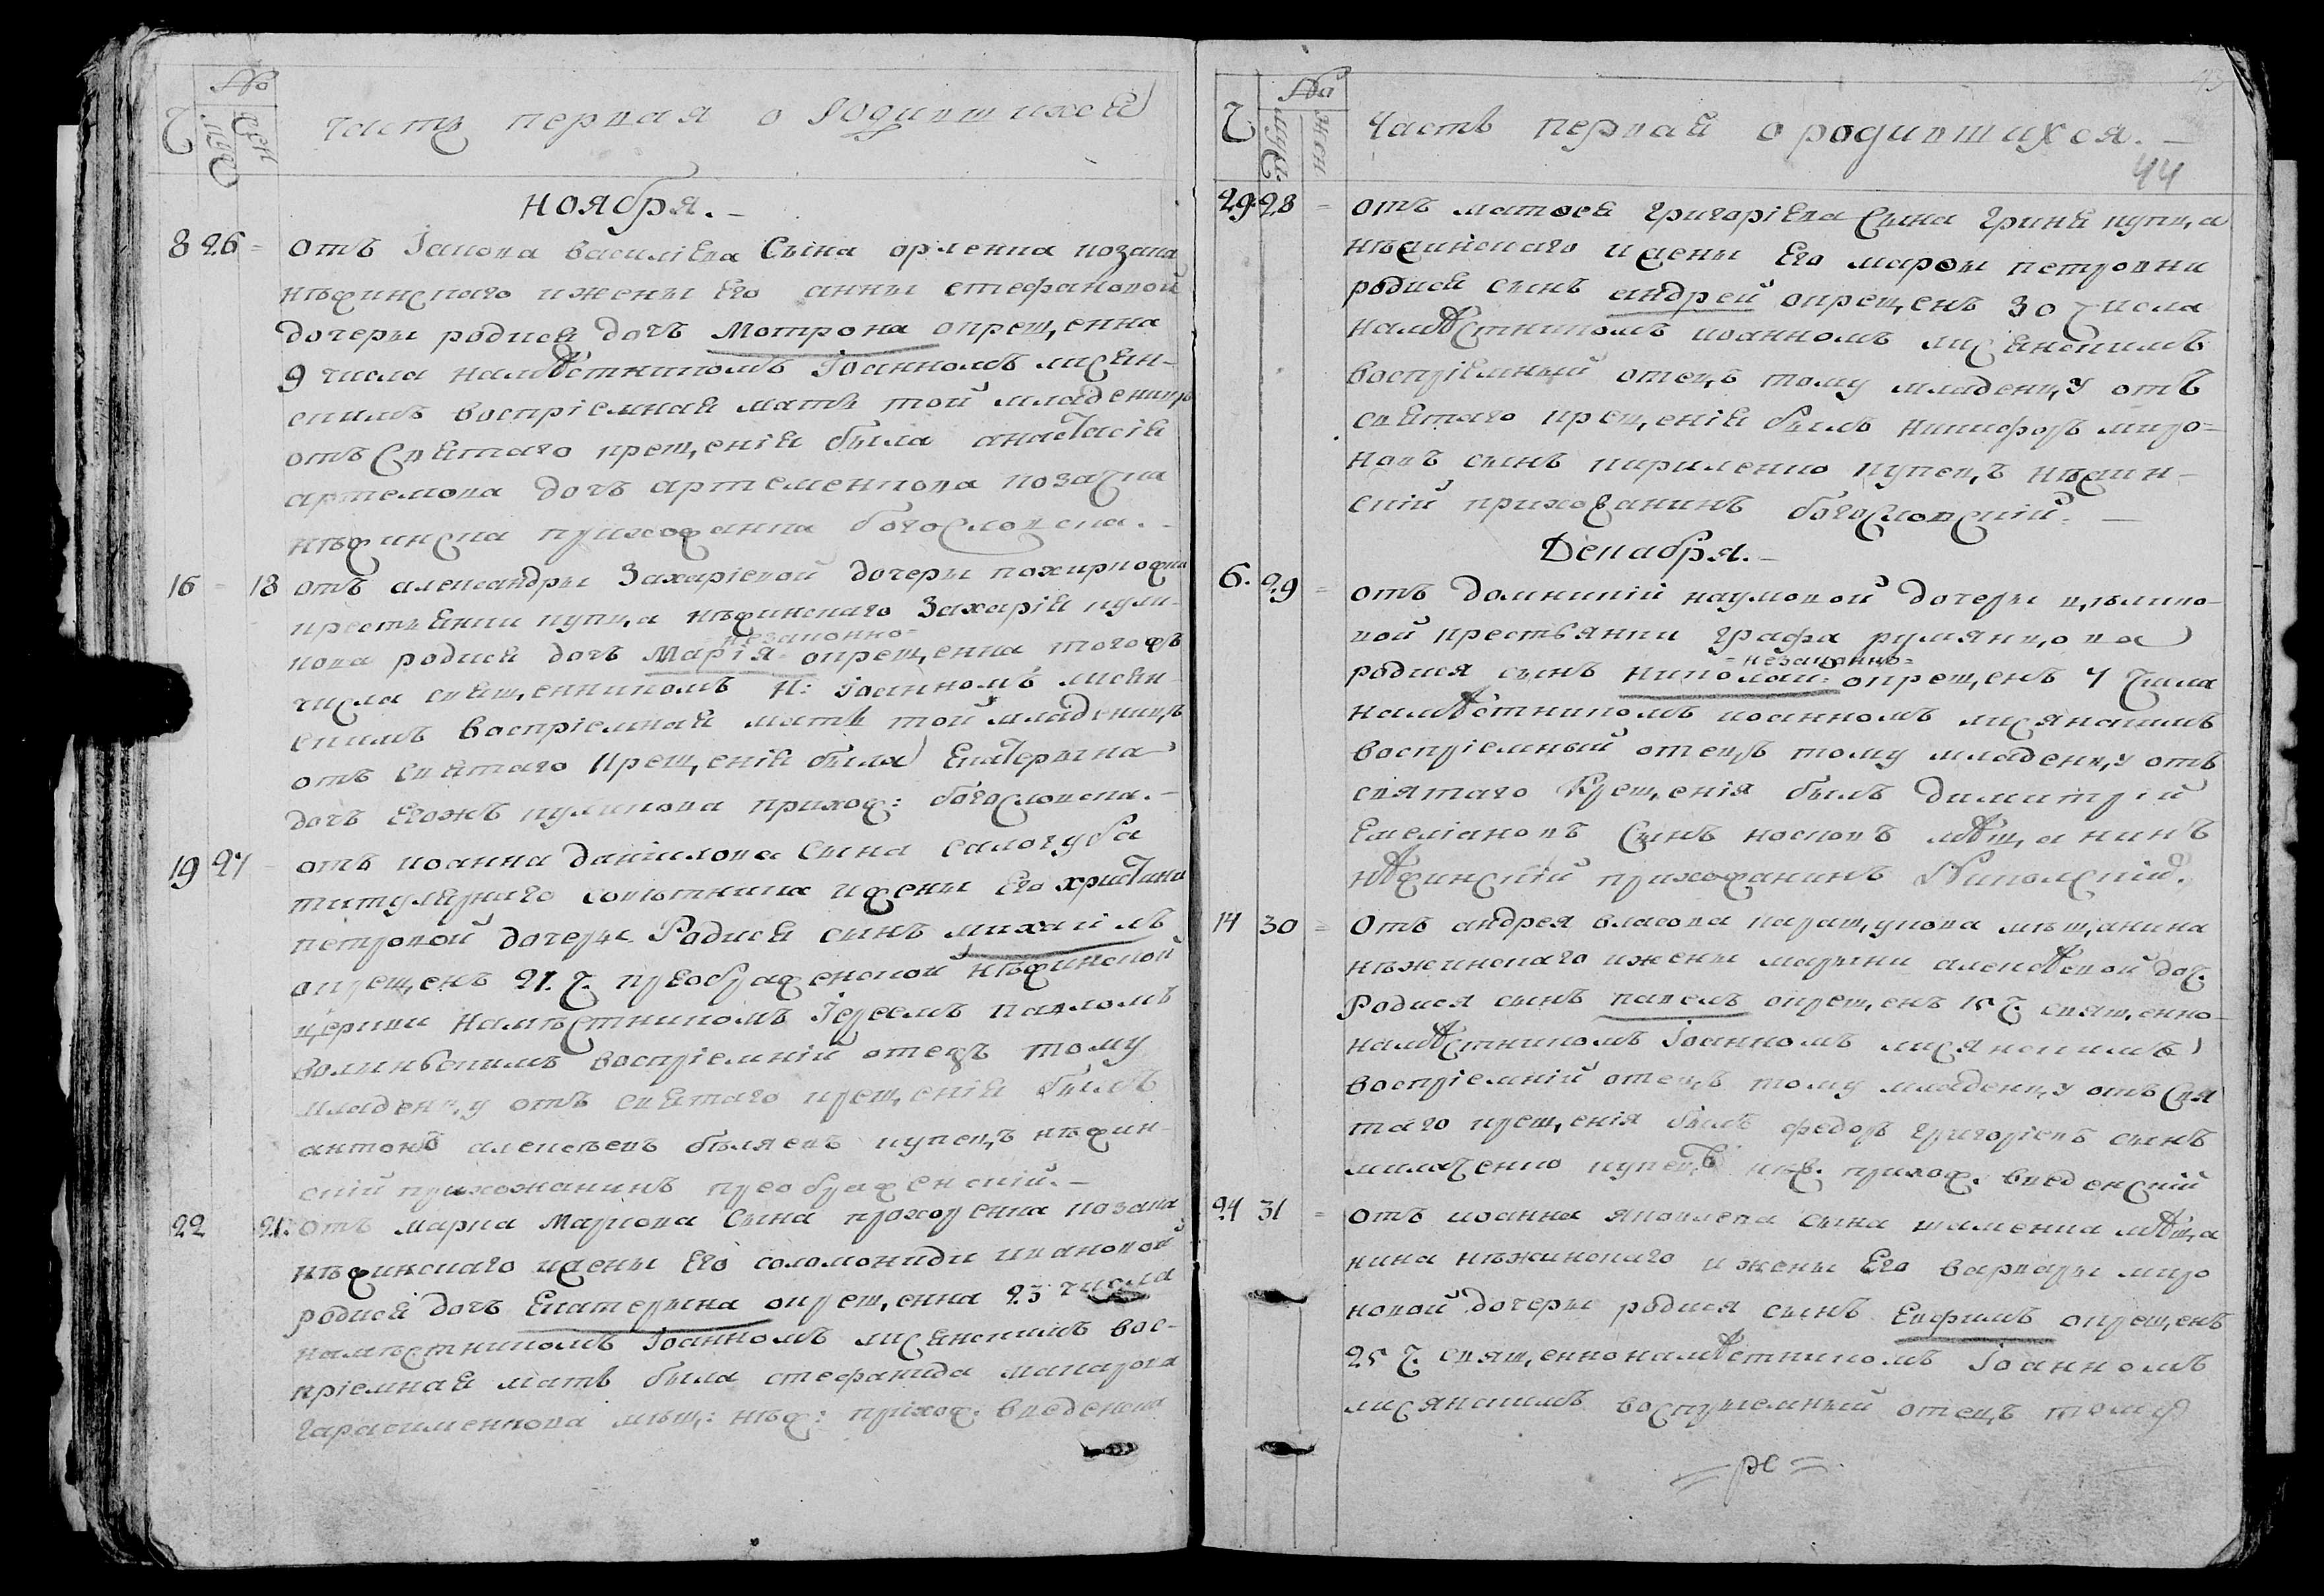 №
Ч муж. жен.
часть первая о Родившихся
Ноября. —
8 26 = отъ Іакова василіева Сына орленка козака
нѣжинскаго и жены Его анны стефановой
дочеры родися дочь Мотрона окрещенна
9 числа намѣстникомъ Іоанномъ лисян-
скимъ воспріемная мать той младеницѣ
отъ Святаго крещенія была анастасія
артемова дочь артеменкова козачка
нѣжинска прихожанка богословска. -
16 = 18 отъ александры Захаріевой дочеры
крестьянки купца нѣжинскаго Захарія кули-
= незаконно =
кова родися дочь Марія окрещенна тогожъ
числа священникомъ н: Іоанномъ лисян-
скимъ воспріемная мать той младеницѣ
отъ святаго крещенія была Екатерына
дочь Егожъ куликова прихож: богословска. -
19 27 - отъ иоанна данилова Сына Салогуба
титулярнаго совѣтника и жены Его христины
петровой дочеры Родися сынъ михаилъ
окрещенъ 21. Ч. преображенской нѣжинской
церкви Намѣстникомъ Іереемъ павломъ
волинскимъ воспріемній отецъ тому
младенцу отъ святаго крещенія былъ
антонъ алексѣевъ бѣляевъ купецъ нѣжин-
скій прихожанинъ преображенскій. —
22 21. отъ марка Маркова Сына прохоренка козака
нѣжинскаго и жены Его соломониди ивановой
родися дочь Екатерына окрещенна 23 числа
намѣстникомъ Іоанномъ лисянскимъ вос-
пріемная мать была стефанида макарова
гарасименкова мѣщ: нѣж: приход: введенска
№
Ч муж. жен
43
Часть первая о родившихся. —
44
29. 28 = отъ матфея григоріева Сына Гриня купца
нѣжинскаго и жены Его марфы петровни
родися сынъ андрей окрещенъ 30 числа
намѣстникомъ иоанномъ лисянскимъ
воспріемный отецъ тому младенцу отъ
святаго крещенія былъ никифоръ миро-
новъ сынъ кириленко купецъ нѣжин-
скій прихожанинъ богословскій. —
Декабря. —
6. 29 = отъ домникій наумовой дочеры
вой крестьянки графа румянцова
= незаконно =
родися сынъ николай окрещенъ 7 числа
намѣстникомъ иоанномъ лисянскимъ
воспріемный отецъ тому младенцу отъ
святаго Крещенія былъ димитрій
Емеліановъ Сынъ носковъ мѣщанинъ
нѣжинскій прихожанинъ Николскій.
14 30 = Отъ андрея власова паращукова мѣщанина
нѣжинскаго и жены марыни алексѣевой доч.
Родися сынъ павелъ окрещенъ 15 Ч. священно-
намѣстникомъ Іоанномъ лисянскимъ
воспріемній отецъ тому младенцу отъ Свя
таго крещенія былъ федоръ григоріевъ сынъ
милаченко купецъ нѣж. прихож. введенскій
24 31 = отъ иоанна яковлева сына шаменка мѣща
нина нѣжинскаго и жены Его варвары миро
новой дочеры родися сынъ Евфимъ окрещенъ
25 Ч. священнонамѣстникомъ Іоанномъ
лисянскимъ воспрыемный отецъ тому